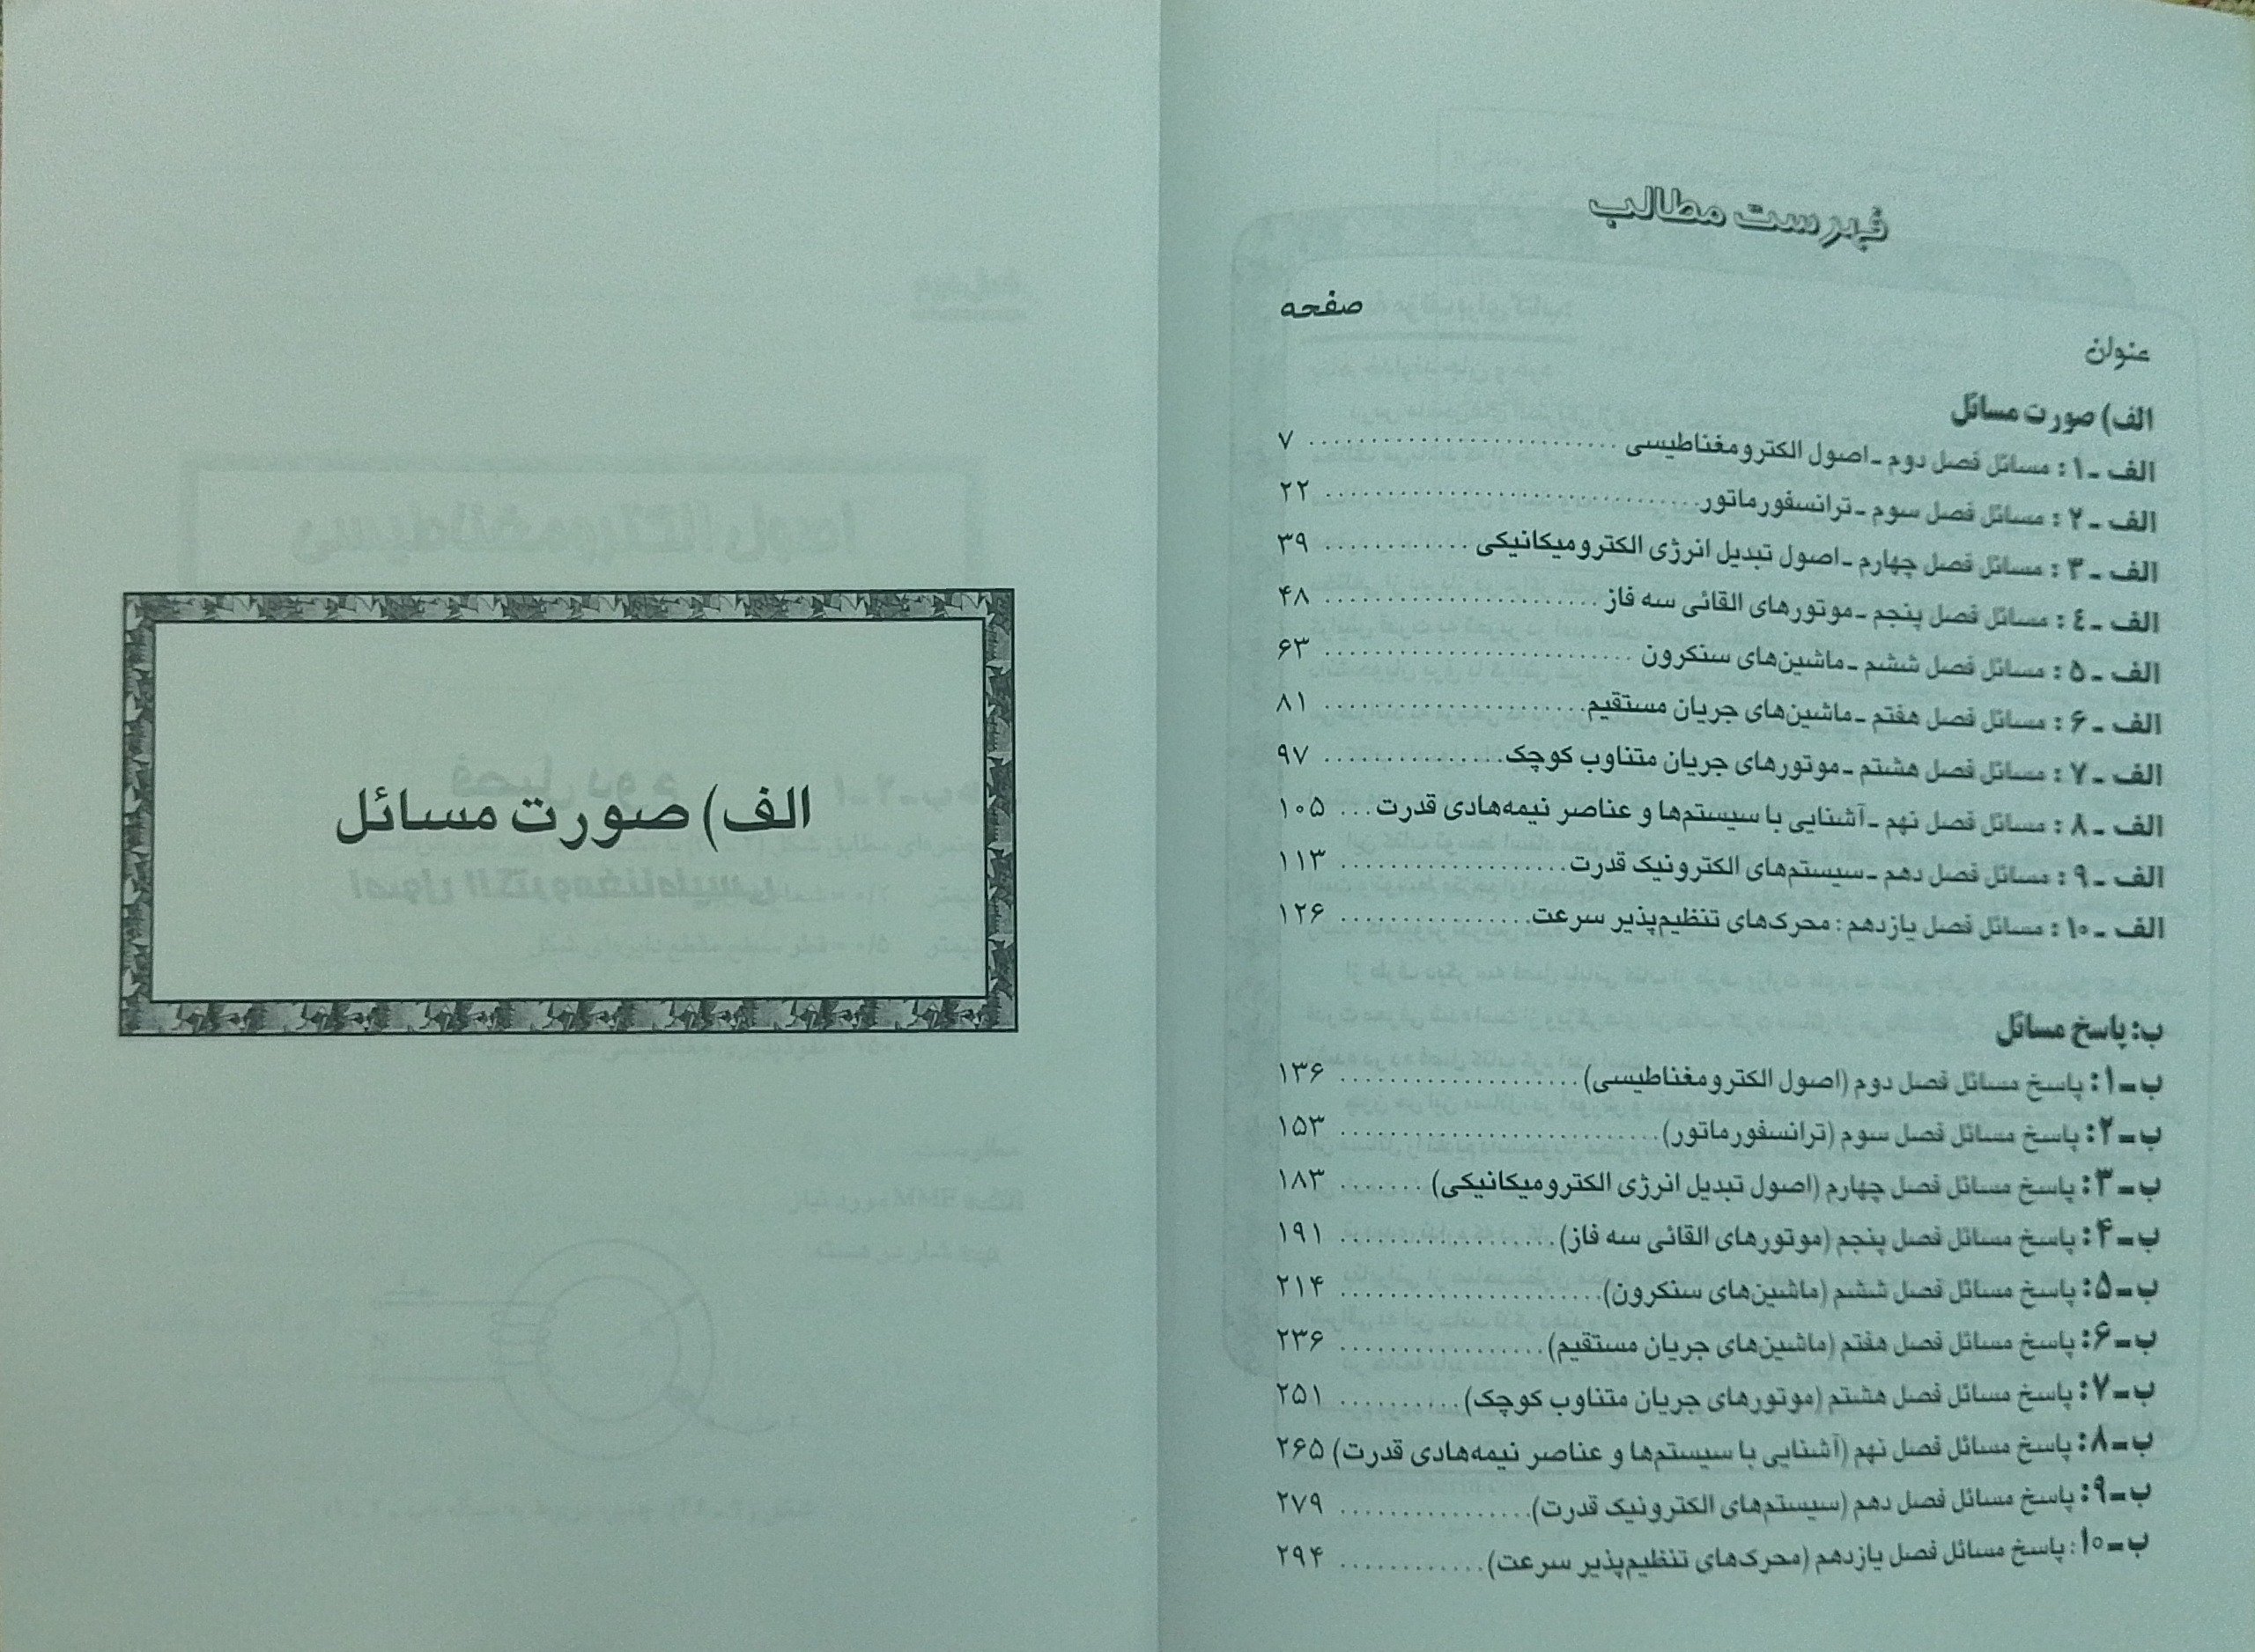 فهرست مطالب
عنوان صفحه
الف) صورت مسائل
الف ـ ۱: مسائل فصل دوم ـ اصول الکترومغناطیسی ........................ ۷
الف ـ ۲: مسائل فصل سوم ـ ترانسفورماتور ............................. ۲۲
الف ـ ۳: مسائل فصل چهارم ـ اصول تبدیل انرژی الکترومیکانیکی ............ ۳۹
الف ـ ٤: مسائل فصل پنجم ـ موتورهای القائی سه فاز ....................... ۴۸
الف ـ ۵: مسائل فصل ششم ـ ماشین‌های سنکرون ........................ ۶۳
الف ـ ۶: مسائل فصل هفتم ـ ماشین‌های جریان مستقیم ...................... ۸۱
الف ـ ۷: مسائل فصل هشتم ـ موتورهای جریان متناوب کوچک ............... ۹۷
الف ـ ۸: مسائل فصل نهم ـ آشنایی با سیستم‌ها و عناصر نیمه‌هادی قدرت ... ۱۰۵
الف ـ ۹: مسائل فصل دهم ـ سیستم‌های الکترونیک قدرت .................. ۱۱۳
الف ـ ۱۰: مسائل فصل یازدهم : محرک‌های تنظیم‌پذیر سرعت ................ ۱۲۶
ب: پاسخ مسائل
ب ـ ۱: پاسخ مسائل فصل دوم (اصول الکترومغناطیسی) .................... ۱۳۶
ب ـ ۲: پاسخ مسائل فصل سوم (ترانسفورماتور) .......................... ۱۵۳
ب ـ ۳: پاسخ مسائل فصل چهارم (اصول تبدیل انرژی الکترومیکانیکی) ....... ۱۸۳
ب ـ ۴: پاسخ مسائل فصل پنجم (موتورهای القائی سه فاز) .................. ۱۹۱
ب ـ ۵: پاسخ مسائل فصل ششم (ماشین‌های سنکرون) ...................... ۲۱۴
ب ـ ۶: پاسخ مسائل فصل هفتم (ماشین‌های جریان مستقیم) ................. ۲۳۶
ب ـ ۷: پاسخ مسائل فصل هشتم (موتورهای جریان متناوب کوچک) .......... ۲۵۱
ب ـ ۸: پاسخ مسائل فصل نهم (آشنایی با سیستم‌ها و عناصر نیمه‌هادی قدرت) ۲۶۵
ب ـ ۹: پاسخ مسائل فصل دهم (سیستم‌های الکترونیک قدرت) ................ ۲۷۹
ب ـ ۱۰: پاسخ مسائل فصل یازدهم (محرک‌های تنظیم‌پذیر سرعت) ............ ۲۹۴
الف) صورت مسائل